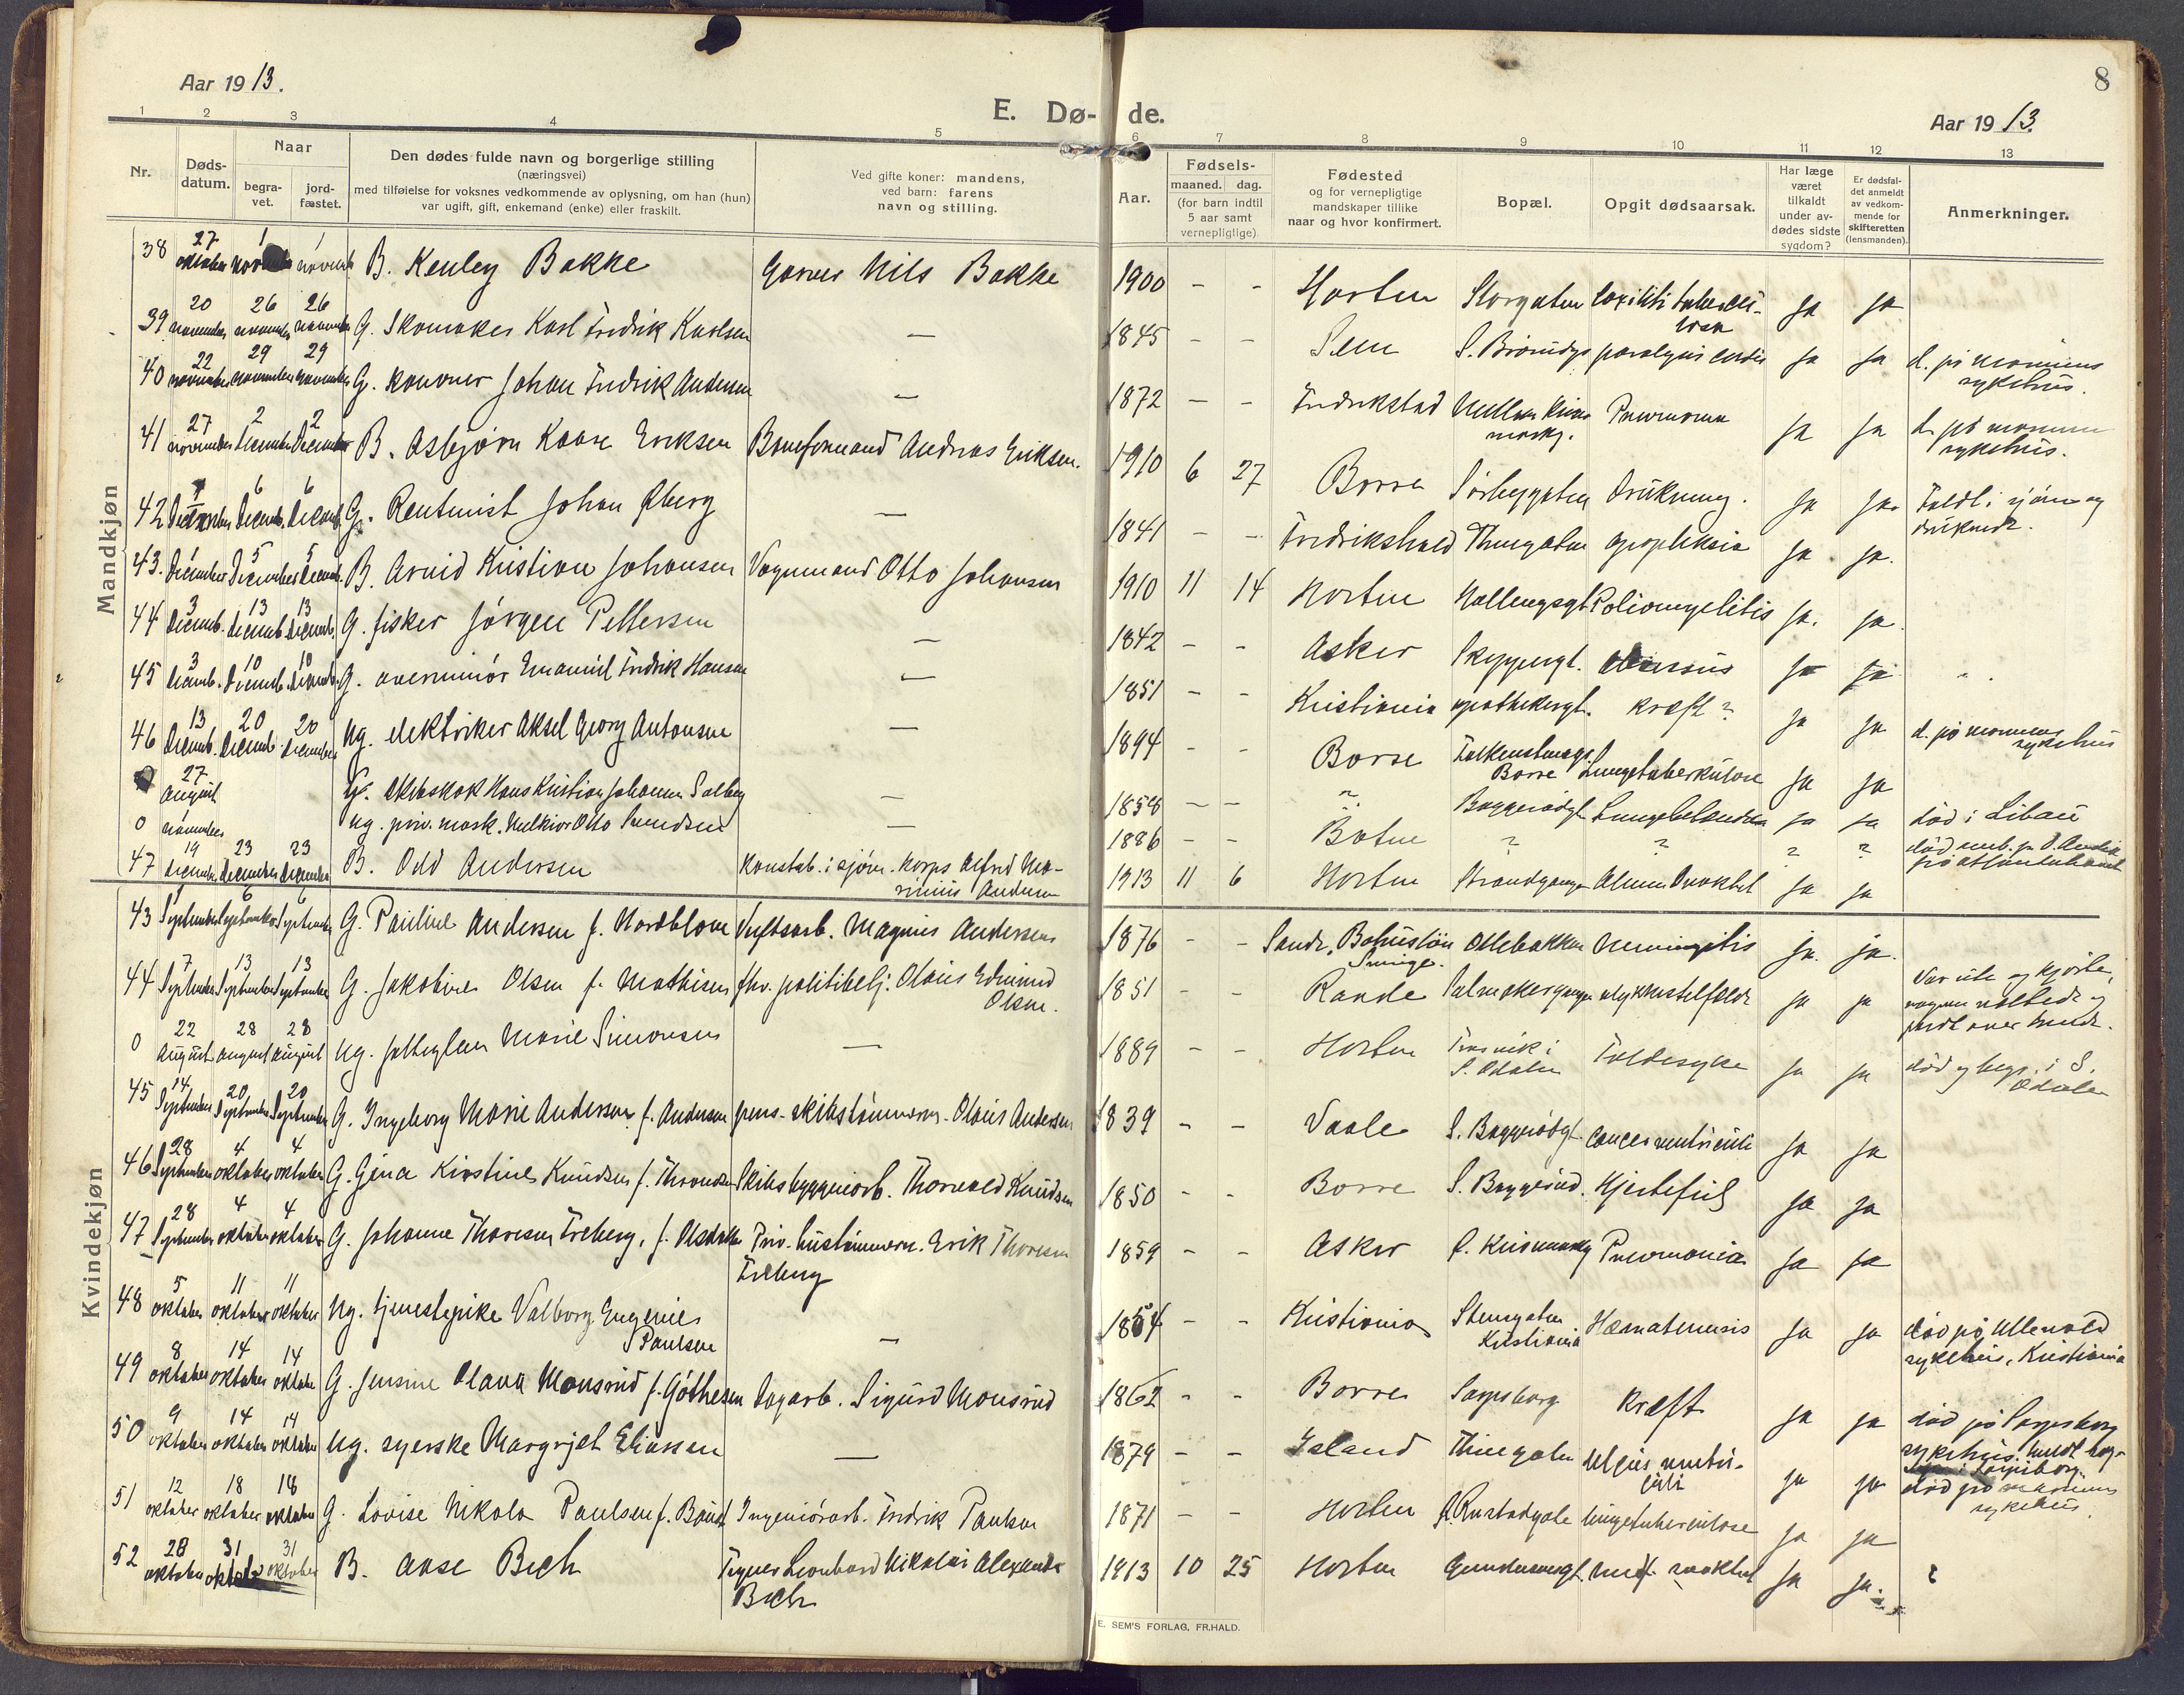 Aar 1913.
8
E. Dø- de.
Aar 1913.
1 2 3 4 5 6 7 8 9 10 11 12 13
Nr.
Døds-
datum.
Naar
begra-
vet.
jord-
fæstet.
Den dødes fulde navn og borgerlige stilling
(næringsvei)
med tilføielse for voksnes vedkommende av oplysning, om han (hun)
var ugift, gift, enkemand (enke) eller fraskilt.
Ved gifte koner: mandens,
ved barn: farens
navn og stilling.
Aar.
Fødsels-
maaned. dag.
(for barn indtil
5 aar samt
vernepligtige)
Fødested
og for vernepligtige
mandskaper tillike
naar og hvor konfirmert.
Bopæl.
Opgit dødsaarsak.
Har læge
været
tilkaldt
under av-
dødes sidste
sygdom?
Er dødsfal-
det anmeldt
av vedkom-
mende for
skifteretten
(lensmanden).
Anmerkninger.
Mandkjøn
38 27 oktober 1 november 1 novemb B. Kenley Bakke Garver Nils Bakke 1900 - - Horten Storgaten coxitis tubercu-
losa ja ja
39 20 november 26 november 26 november G. Skomaker Karl Fredrik Karlsen — 1845 - - Sem paralysis cordis ja ja d. på marinens
sykehus.
40 22 november 29 november 29 november G. Johan Fredrik Andersen — 1872 - - Fredrikstad Pneumonia ja ja d. på marinens
sykehus.
41 27 november 2 December 2 December B. Asbjørn Kaare Eriksen Baneformand Andreas Eriksen. 1910 6 27 Borre Drukning. ja ja Faldt i sjøen og
druknede.
42 December 6 Decemb. 6 Decemb. G. Rentenist Johan Øberg — 1841 - - Fredrikshald Thuegaten apopleksia ja ja.
43. 1 December 5 December 5 Decemb. B. Arvid Kristian Johansen Vognmand Otto Johansen 1910 11 14 Horten Poliomyelitis ja. ja.
44 3 Decemb. 13 Decemb. 13 Decemb. G. fisker Jørgen Pettersen — 1842 - - Asker Skippergt. ja ja
45 3 Decemb. 10 Decemb. 10 Decemb. G. overminør Emanuel Fredrik Hansen — 1851 - - Kristiania apothekergt. kræft? ja ja d. på marinens
sykehus
46 13 Decemb. 20 Decemb. 20 December Ug. elektriker Aksel Georg Antonsen — 1894 - - Borre Falkenstensgt.
Borre Lungetuberkulose ja ja
27 august G. Skibskok Hans Kristian Johannes Solberg — 1858 - - ? Baggerødgt. Lungebetændelse ja ja død i Libau
0 november ug. priv. mask. Melkior Otto Svendsen — 1886 - - Botne ? ? ? ?
47 19 December 23 December 23 December B. Odd Andersen Konstab. i sjøm. korps Alfred Ma-
rinius Andersen 1913 11 6 Horten ja ja
Kvindekjøn
43 1 September 6 September 6 September G. Pauline Andersen f. Nordblom Verftsarb. Magnus Andersen 1876 - - Bohuslän
Sverige. Ollebakken Meningitis ja. ja.
44 7 September 13 September 13 September G. Jakobine Olsen f. Mathisen fhv. politibetj. Olaus Edmund
Olsen. 1851 - - Ramnes ulykkestilfælde ja ja Var ute og kjørte,
vognen væltede og
faldt over hende.
0 22 august 28 august 28 august Ug. Marie Simonsen — 1889 - - Horten i
S. Odalen Faldesyke ja ja død og begr. i S.
Odalen
45 14 September 20 September 20 September G. Ingeborg Marie Andersen f. Andersen pens. skibstømmerm. Olaus Andersen 1839 - - Vaale S. Baggerødgt. cancer ventriculi ja ja
46 28 September 4 oktober 4 oktober G. Gina Kirstine Knudsen f. Skibsbyggeriarb. Thorvald Knudsen 1850 - - Borre S. Baggerød. Hjertefeil ja ja
47 28 September 4 oktober 4 oktober G. Johanne Thoresen Freberg, f. Olsdatter Priv. hustømmerm. Erik Thoresen
Freberg 1859 - - Asker Pneumonia ja ja
48 5 oktober 11 oktober 11 oktober Ug. tjenestepike Valborg Eugenie
Paulsen — - - Kristiania Stensgaten
Kristiania Hæmatemesis ja ja død på Ullevold
sykehus, Kristiania
49 8 oktober 14 oktober 14 oktober G. Jensine Olava Monsrud f. Göthesen Dagarb. Sigurd Monsrud 1862 - - Borre Sarpsborg Kræft ja ja død på Sarpsborg
sykehus.
50 9 oktober 14 oktober 14 oktober Ug. syerske Margrjet Eliassen — 1879 - - Island Thuegaten Ulcus ventri-
culi ja ja død på marinens
sykehus
51 12 oktober 18 oktober 18 oktober G. Lovise Nikola Paulsen f. Ingeniørarb. Fredrik Paulsen 1871 - - Horten Lungetuberculose ja ja
52 28 oktober 31 oktober 31 oktober B. Aase Bech Leonhard Nikolai Alexander
Bech 1913 10 25 Horten Gundersensgt. medf. svakhet ja ja.
E. SEM'S FORLAG, FR.HALD.